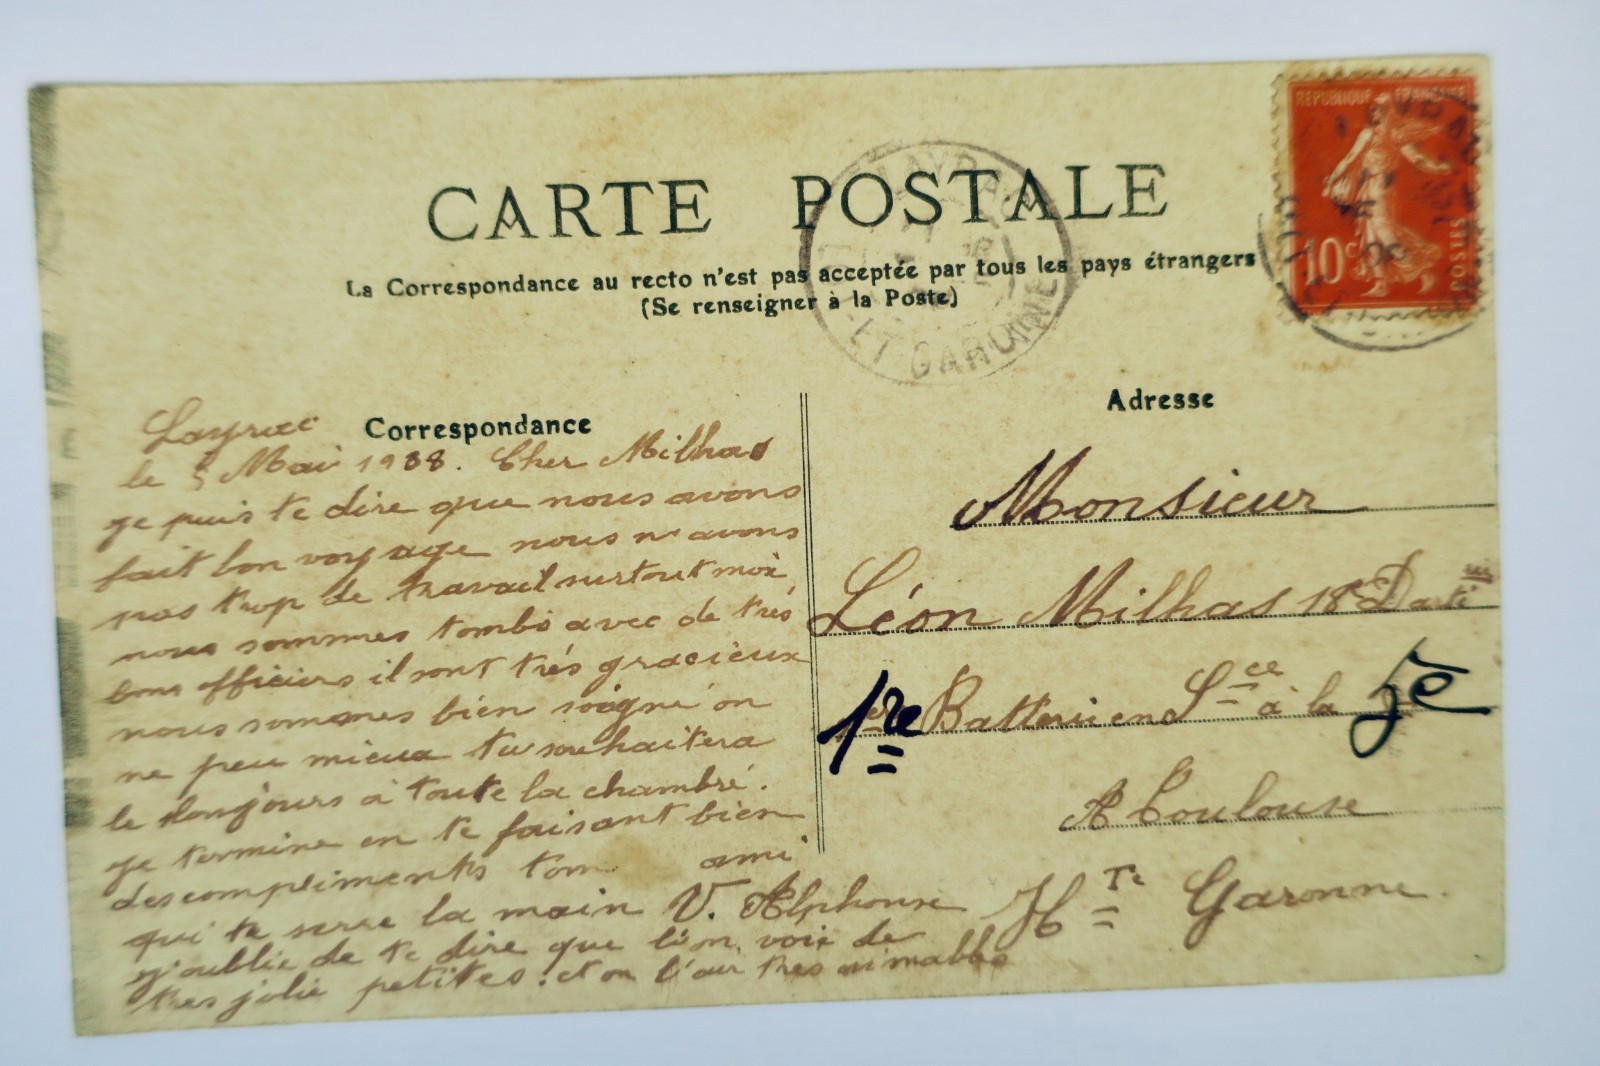 CARTE POSTALE
La Correspondance au recto n'est pas acceptée par tous les pays étrangers
(Se renseigner à la Poste)
REPUBLIQUE FRANÇAISE
10c POSTES
LAYRAC
ET-GARONNE
Correspondance
Layrac
le 5 Mai 1908. Cher Milhas
je puis te dire que nous avons
fait bon voyage nous n'avons
pas trop de travail surtout moi
nous sommes tombé avec de très
bons officiers il sont très gracieux
nous sommes bien soigné on
ne peu mieux tu souhaitera
le bonjours à toute la chambré.
je termine en te faisant bien
des compliments ton ami
qui te serre la main V. Alphonse
j'oublie de te dire que l'on voie de
tres jolie petites. et on l'air tres aimables
Adresse
Monsieur
Léon Milhas 18e
1re Batterie en Sce à la 5e
A Toulouse
Hte Garonne.